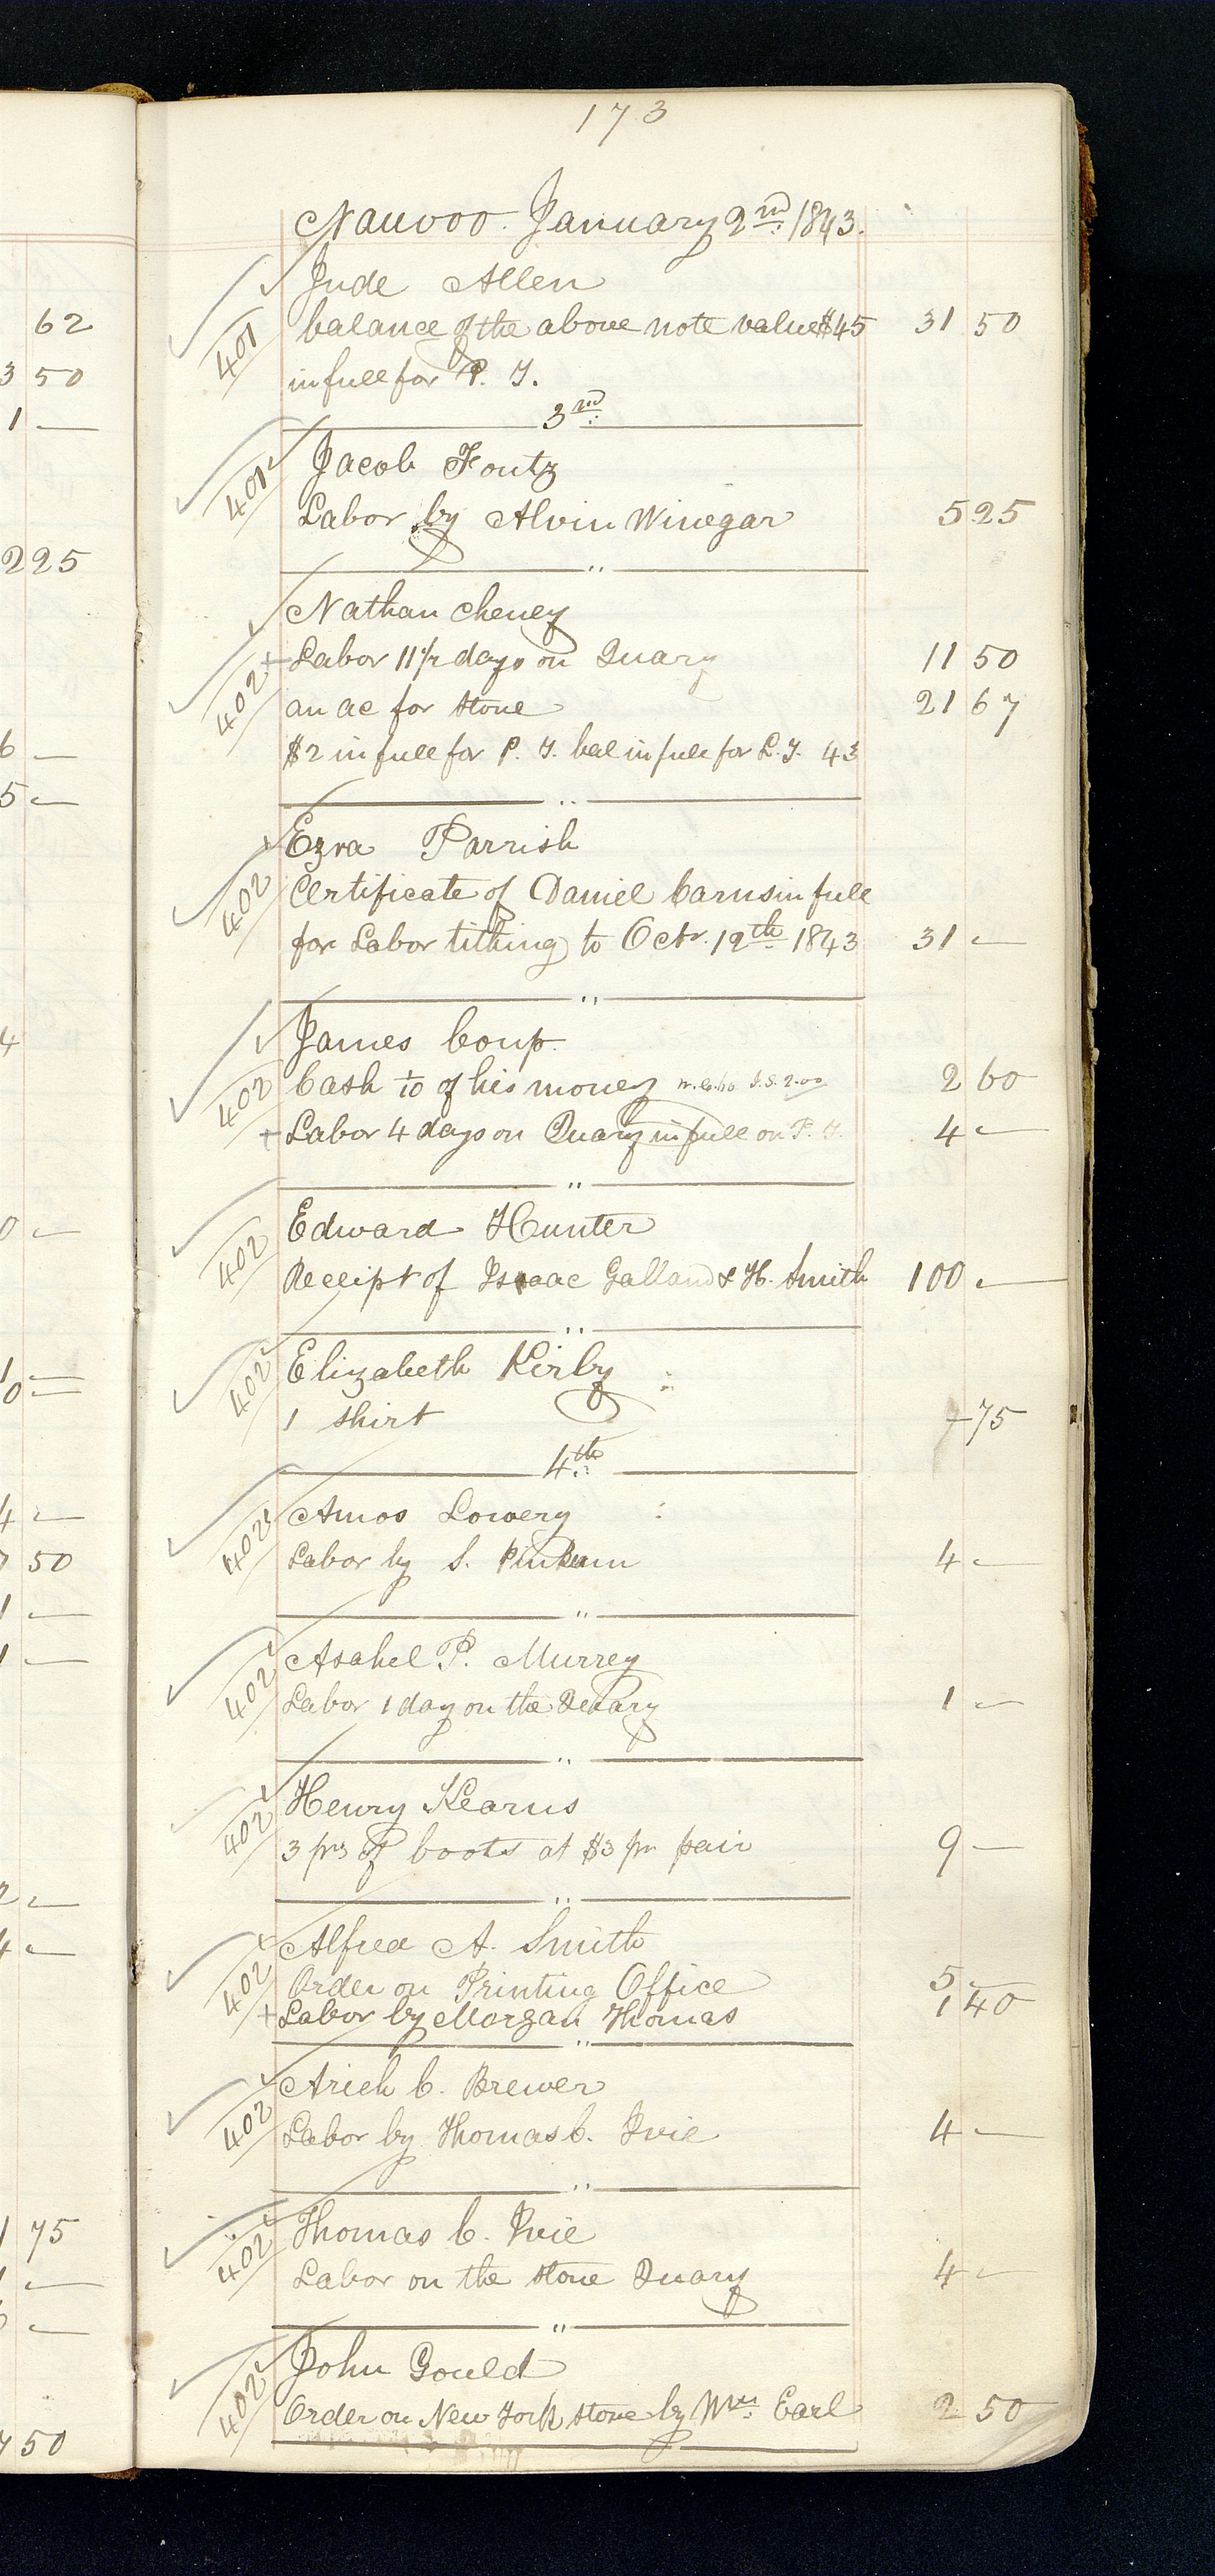 173
Nauvoo January 2nd 1843.
62
Jude Allen
401 balance of the above note value $45 31 50
3 50
in full for P. T.
1 —
3rd
401 Jacob Foutz
Labor by Alvin Winegar 5 25
2 25
"
Nathan Cheney
+ Labor 11 1/2 days on Quary 11 50
402 an ac for stone 21 67
$2 in full for P. T. bal in full for L. T. 43
6 —
5 —
"
Ezra Parrish
402 Certificate of Daniel Carns in full
for Labor tithing to Octr. 12th 1843 31 —
"
4
James Coup
402 Cash 1/10 of his money 2 60
+ Labor 4 days on Quary in full on P. T. 4 —
"
0 —
402 Edward Hunter
Receipt of Isaac Galland & H. Smith 100 —
"
402 Elizabeth Kirby
1 —
0 —
1 shirt 75
4th
4 —
402 Amos Lowery
7 50
Labor by S. Pinkam 4 —
1 —
"
1 —
402 Asahel P. Murrey
Labor 1 day on the Quary 1 —
"
402 Henry Kearns
3 prs of boots at $3 pr pair 9 —
2 —
"
4 —
402 Alfred A. Smith
Order on Printing Office 5 —
+ Labor by Morgan Thomas 1 40
"
402 Arieh C. Brewer
Labor by Thomas C. Ivie 4 —
"
1 75
402 Thomas C. Ivie
Labor on the stone Quary 4 —
"
402 John Gould
Order on New York store by Wm. Earl 2 50
7 50